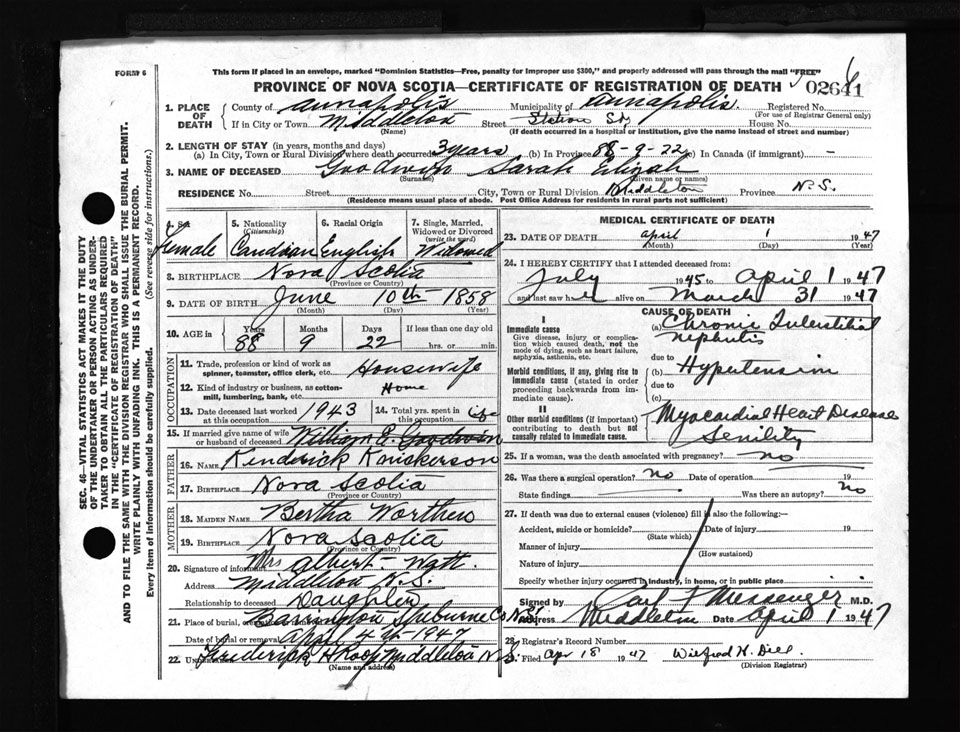 FORM 6
This form if placed in an envelope, marked "Dominion Statistics—Free, penalty for improper use $300," and properly addressed will pass through the mail "FREE"
PROVINCE OF NOVA SCOTIA—CERTIFICATE OF REGISTRATION OF DEATH 02641
1. PLACE OF DEATH County of Annapolis Municipality of Annapolis. Registered No.
(For use of Registrar General only)
If in City or Town Middleton Street Station St House No.
(Name) (If death occurred in a hospital or institution, give the name instead of street and number)
2. LENGTH OF STAY (in years, months and days)
(a) In City, Town or Rural Division where death occurred 3 years (b) In Province 88-9-22 (c) In Canada (if immigrant) -
3. NAME OF DECEASED Goodwin Sarah
(Surname) (Given name or names)
RESIDENCE No. Street City, Town or Rural Division Middleton Province N.S.
(Residence means usual place of abode. Post Office Address for residents in rural parts not sufficient)
4. Sex Female
5. Nationality (Citizenship) Candian
6. Racial Origin English
7. Single, Married, Widowed or Divorced (write the word) Widowed
8. BIRTHPLACE Nova Scotia
(Province or Country)
9. DATE OF BIRTH June 10th 1858
(Month) (Day) (Year)
10. AGE in Years 88 Months 9 Days 22 If less than one day old hrs. or min.
OCCUPATION
11. Trade, profession or kind of work as spinner, teamster, office clerk, etc. Housewife
12. Kind of industry or business, as cotton-mill, lumbering, bank, etc. Home
13. Date deceased last worked at this occupation 1943 14. Total yrs. spent in this occupation life
15. If married give name of wife or husband of deceased William E. Goodwin
FATHER
16. NAME Kendrick
17. BIRTHPLACE Nova Scotia
(Province or Country)
MOTHER
18. MAIDEN NAME Bertha
19. BIRTHPLACE Nova Scotia
(Province or Country)
20. Signature of informant Mrs Albert
Address Middleton N.S.
Relationship to deceased Daughter
21. Place of burial, Barrington Co N.S.
Date of burial or removal April 4th 1947
22. Frederick H Roop Middleton N.S.
(Name and address)
MEDICAL CERTIFICATE OF DEATH
23. DATE OF DEATH April 1 1947
(Month) (Day) (Year)
24. I HEREBY CERTIFY that I attended deceased from:
July 1945 to April 1 1947
and last saw her alive on March 31 1947
CAUSE OF DEATH
I
Immediate cause
Give disease, injury or complication which caused death, not the mode of dying, such as heart failure, asphyxia, asthenia, etc.
(a) Chronic Interstitial nephritis
due to
Morbid conditions, if any, giving rise to immediate cause (stated in order proceeding backwards from immediate).
(b) Hypertension
due to
(c)
II
Other morbid conditions (if important) contributing to death but not causally related to immediate cause.
Myocardial Heart Disease
Senility
25. If a woman, was the death associated with pregnancy? no
26. Was there a surgical operation? no Date of operation 19
State findings Was there an autopsy? no
27. If death was due to external causes (violence) fill in also the following:—
Accident, suicide or homicide? Date of injury 19
(State which)
Manner of injury
(How sustained)
Nature of injury
Specify whether injury occurred in industry, in home, or in public place
Signed by Carl Messenger M.D.
Address Middleton Date April 1 1947
28. Registrar's Record Number
Filed Apr 18 1947 Wilfred H.
(Division Registrar)
SEC. 46—VITAL STATISTICS ACT MAKES IT THE DUTY
OF THE UNDERTAKER OR PERSON ACTING AS UNDER-
TAKER TO OBTAIN ALL THE PARTICULARS REQUIRED
IN THE "CERTIFICATE OF REGISTRATION OF DEATH"
AND TO FILE THE SAME WITH THE DIVISION REGISTRAR WHO SHALL ISSUE THE BURIAL PERMIT.
WRITE PLAINLY WITH UNFADING INK. THIS IS A PERMANENT RECORD.
Every item of Information should be carefully supplied. (See reverse side for instructions.)